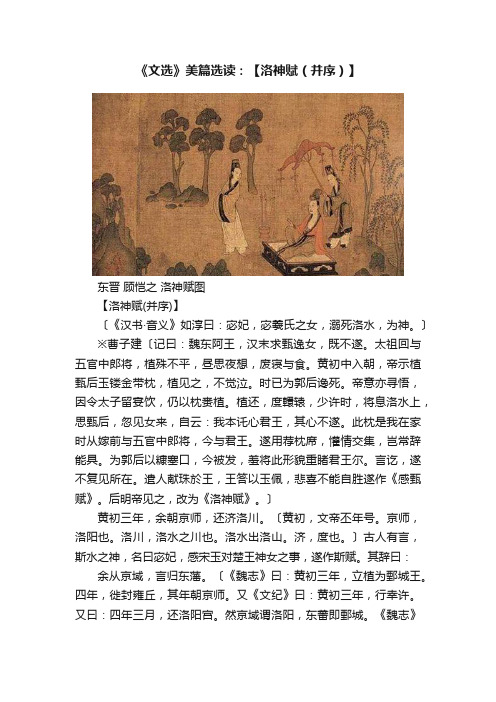 《文选》美篇选读：【洛神赋（并序）】
东晋 顾恺之 洛神赋图
【洛神赋(并序)】
〔《汉书·音义》如淳曰：宓妃，宓羲氏之女，溺死洛水，为神。〕
※曹子建〔记曰：魏东阿王，汉末求甄逸女，既不遂。太祖回与
五官中郎将，植殊不平，昼思夜想，废寝与食。黄初中入朝，帝示植
甄后玉镂金带枕，植见之，不觉泣。时已为郭后谗死。帝意亦寻悟，
因令太子留宴饮，仍以枕赉植。植还，度轘辕，少许时，将息洛水上，
思甄后，忽见女来，自云：我本讬心君王，其心不遂。此枕是我在家
时从嫁前与五官中郎将，今与君王。遂用荐枕席，懽情交集，岂常辞
能具。为郭后以糠塞口，今被发，羞将此形貌重睹君王尔。言讫，遂
不复见所在。遣人献珠於王，王答以玉佩，悲喜不能自胜遂作《感甄
赋》。后明帝见之，改为《洛神赋》。〕
黄初三年，余朝京师，还济洛川。〔黄初，文帝丕年号。京师，
洛阳也。洛川，洛水之川也。洛水出洛山。济，度也。〕古人有言，
斯水之神，名曰宓妃，感宋玉对楚王神女之事，遂作斯赋。其辞曰：
余从京域，言归东藩。〔《魏志》曰：黄初三年，立植为鄄城王。
四年，徙封雍丘，其年朝京师。又《文纪》曰：黄初三年，行幸许。
又曰：四年三月，还洛阳宫。然京域谓洛阳，东蕃即鄄城。《魏志》